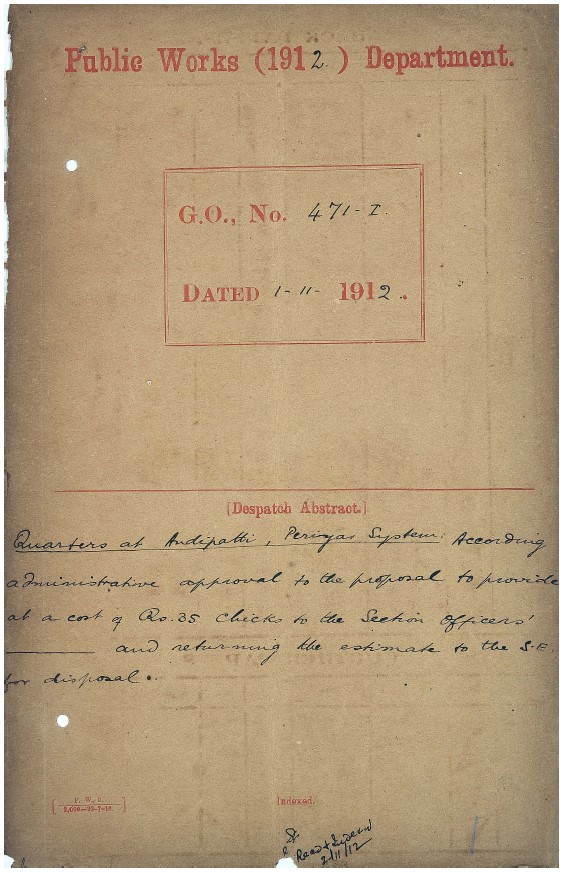 Public Works (1912.) Department.
G.O., No. 471-I.
DATED 1-11- 1912.
[Despatch Abstract.]
Quarters at Andipatti, Periyar System: According
administrative approval to the proposal to provide
at a cost of Rs. 35 chicks to the Section Officers'
and returning the estimate to the S.E.
for disposal.
P. W. D.
Indexed.
2/11/12